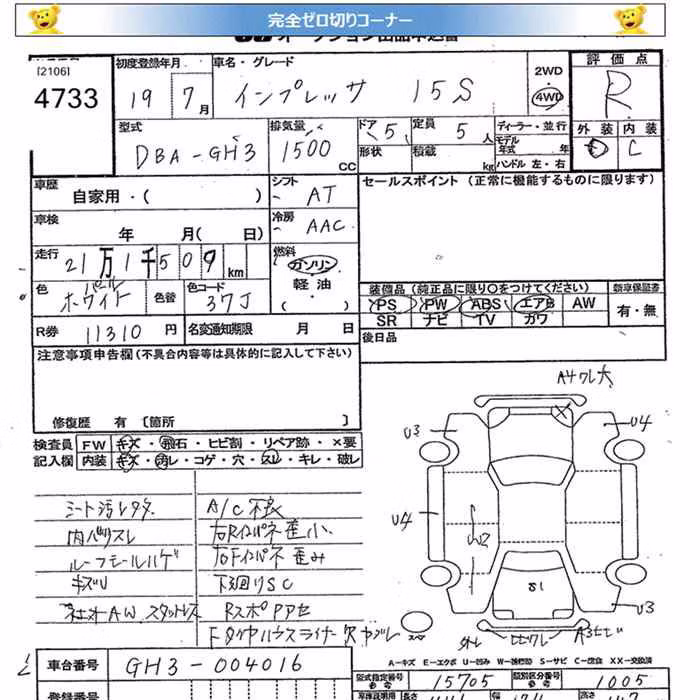 完全ゼロ切りコーナー
[2106]
4733
初度登録年月
19 7月
車名・グレード
インプレッサ 15S
2WD
4WD
評価点
R
外装 内装
D C
型式
DBA-GH3
排気量
1500 CC
ドア 5
形状
定員 5人
積載 kg
ディーラー・並行
モデル年式 年
ハンドル 左・右
車歴
自家用・( )
シフト
AT
セールスポイント (正常に機能するものに限ります)
車検
年 月( 日)
冷房
AAC
走行
21万1千509km
燃料
ガソリン
軽油・
( )
色
パール
ホワイト
色替
色コード
37J
装備品 (純正品に限り○をつけてください)
PS PW ABS エアB AW
SR ナビ TV カワ
新車保証書
有・無
R券 11310円
名変通知期限 月 日
後日品
注意事項申告欄 (不具合内容等は具体的に記入して下さい)
修復歴 有 〔箇所 〕
検査員
記入欄
FW キズ・飛石・ヒビ割・リペア跡・×要
内装 キズ・汚レ・コゲ・穴・スレ・キレ・破レ
シート汚レ
内ハリスレ
ルーフモールハゲ
キズU
社外AW スタットレス
A/C不良
右Rインパネ歪小
右Fインパネ歪み
下廻りSC
RスポPアセ
Fタイヤハウスライナー欠
A4ワレ大
U3
U4
U4
U2
S1
U3
スペア
A-キズ E-エクボ U-凹み S-サビ C-腐食 XX-交換済
車台番号
GH3-004016
登録番号
型式指定番号
15705
類別区分番号
1005